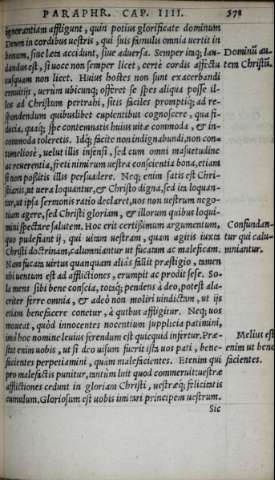 PARAPHR. CAP. IIII. 378
ignorantiam affligunt, quin potius glorificate dominum
Deum in cordibus uestris, qui suis famulis omnia uertit in
bonum, siue læta accidunt, siue aduersa. Semper inquã lau-
dandus est, si uoce non semper licet, certè cordis affectu
nusquam non licet. Huius hostes non sunt exacerbandi
conuitijs, uerum ubicunq; offeret se spes aliqua posse il-
los ad Christum pertrahi, sitis faciles promptiq; ad re-
spondendum quibuslibet cupientibus cognoscere, qua fi-
ducia, quaq; spe contemnatis huius uitæ commoda, & in-
commoda toleretis. Idq; facite non indignabundi, non con-
tumeliose, uelut illis infensi, sed cum omni mãsuetudine
ac reuerentia, freti nimirum uestra conscientia bona, etiam
si non possitis illis persuadere. Neq; enim satis est Chri-
stianis, ut uera loquantur, & Christo digna, sed ita loquan-
tur, ut ipsa sermonis ratio declaret, uos non uestrum nego-
tium agere, sed Christi gloriam, & illorum quibus loqui-
mini spectare salutem. Hoc erit certissimum argumentum,
quo pudefiant ij, qui uitam uestram, quam agitis iuxta
Christi doctrinam, calumniantur ut fucatam ac maleficam.
Nam fucata uirtus quanquam aliàs fallit præstigio, tamen
ubi uentum est ad afflictiones, erumpit ac prodit sese. So-
la mens sibi bene conscia, totaq; pendens à deo, potest ala-
criter ferre omnia, & adeò non moliri uindictam, ut ijs
etiam benefacere conetur, à quibus affligitur. Neq; uos
moueat, quòd innocentes nocentium supplicia patimini,
imò hoc nomine leuius ferendum est quicquid infertur. Præ-
stat enim uobis, ut si deo uisum fuerit ista uos pati, bene-
ficientes perpetiamini, quàm maleficientes. Etenim qui
pro malefactis punitur, tantùm luit quod commeruit: uestræ
afflictiones cedunt in gloriam Christi, uestræq; felicitatis
cumulum. Gloriosum est uobis imitari principem uestrum.
Sic
Dominũ au-
tem Christũ.
Confundan-
tur qui calu-
mniantur.
Melius est
enim ut bene
ficientes.